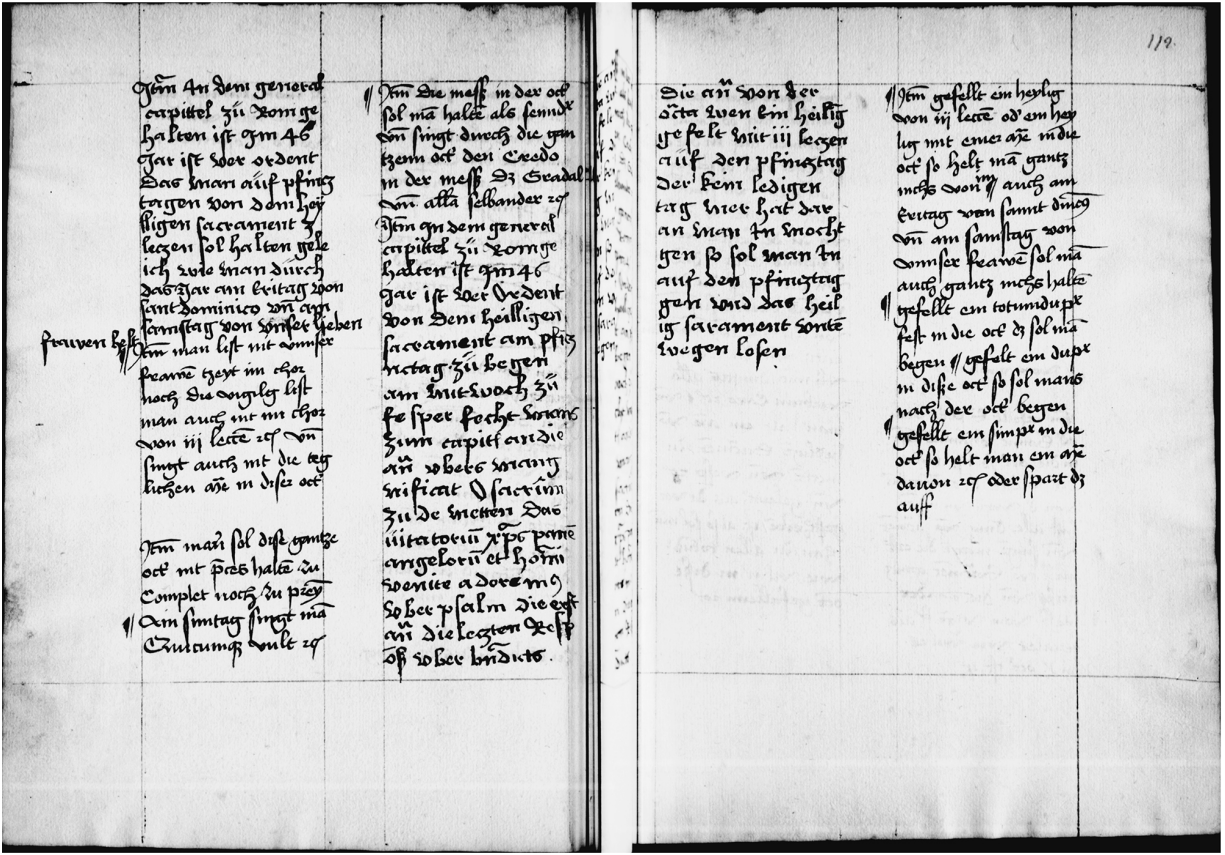 Itm̄ An dem general
capittel zü Rom ge
halten ist ym 46
Jar ist ver ordent
das man aüf pfintz
tagen von dem hey
lligen sacrament 3
leczen sol halten gele
ich wie man dürch
das Jar am Eritag von
sant dominico vn̄ am
samstag von vnser lieben
frawen helt
Itm̄ man list nit vnnser
frawē tzeyt im chor
noch die vigilg list
man auch nit im chor
von iii lectē ꝛc vn̄
singt auch nit die teg
lichen in diser oct
Itm̄ man sol dise gantze
oct mit p̄ces haltē zu
Complet noch zu prey
Am sūntag singt mā
Quicumqꝫ vult ꝛc
Itm̄ die mess in der oct
sol mā haltē als
vn̄ singt durch die gan
tzenn oct den Credo
in der mess dz Gradal
vn̄ all̄a selbander ꝛc
Itm̄ yn dem general
capittel zü Rom ge
halten ist ym 46
Jar ist ver Ordent
von dem heilligen
sacrament am pfin
nctag zü begen
am mitwoch zü
fe sper socht mans
zum capitl an die
an̄ vbers mang
nificat O sacrim̄
zu de metten das
iiitatoriū xp̄s panē
angelorū et hom̄
venite adorēmꝰ
vber psalm die erst
an̄ die leczten Resp
vber bn̄dicts
112.
die an̄ von der
octa wen ein heilig
gefelt mit iii leczen
aüf den pfingtag
der kein ledigen
tag mer hat dar
an man in mocht
gen so sol man in
auf den pfingtag
gen vnd das heil
ig sarament vntē
wegen losen
Itm̄ gefellt ein heylig
von iii lectē od' ein hey
lig mit einer in die
oct so helt mā gantz
nichs von im auch am
Eritag von sannt
vn̄ am samstag von
vnnser frawē sol mā
auch gantz nichs haltē
gefellt ein totumdupꝛ
fest in die oct dz sol mā
begen gefelt ein dupꝛ
in dise oct so sol mans
nach der oct begen
gefellt ein simpꝛ in die
oct so helt man ein
dauon ꝛc oder spart dz
auff